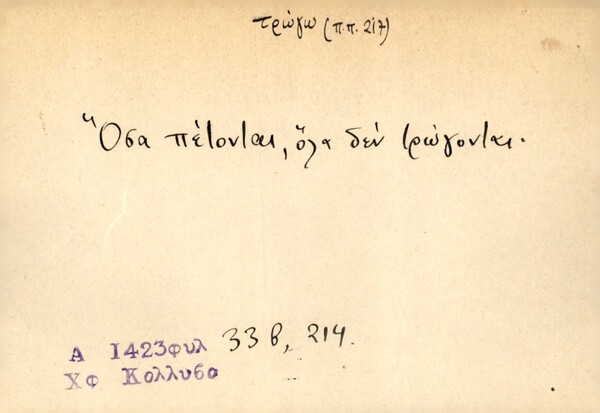 τρώγω (π.π. 217)
Ὅσα πέτονται, ὅλα δὲν τρώγονται.
Α 1423φυλ 33 β, 214.
Χφ Κολλυβα